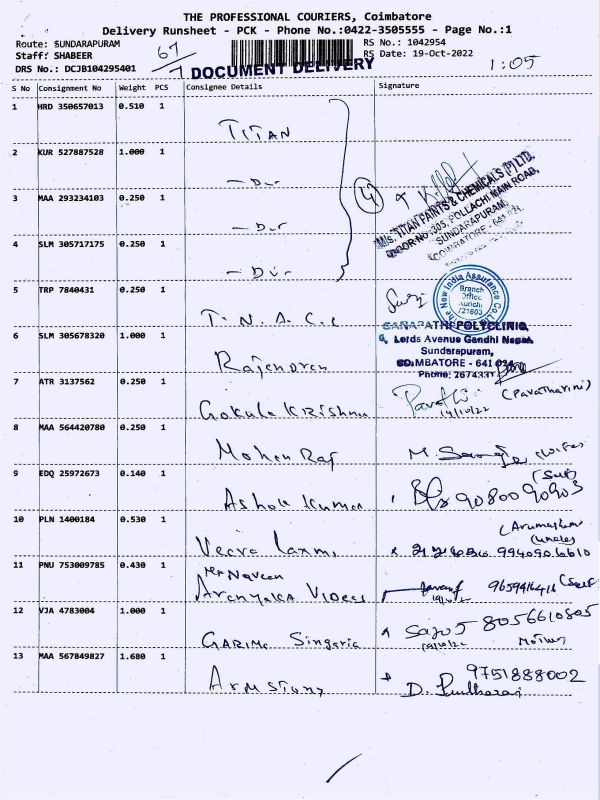 THE PROFESSIONAL COURIERS, Coimbatore
Delivery Runsheet - PCK - Phone No.:0422-3505555 - Page No.:1
Route: SUNDARAPURAM 67 RS No.: 1042954
Staff: SHABEER RS Date: 19-Oct-2022 1:05
DRS No.: DCJB104295401 DOCUMENT DELIVERY
S No Consignment No Weight PCS Consignee Details Signature
1 HRD 350657013 0.510 1 TITAN
2 KUR 527887528 1.000 1
3 MAA 293234103 0.250 1
4 SLM 305717175 0.250 1
4
M/s. TITAN PAINTS & CHEMICALS (P) LTD.
DOOR NO: 305, POLLACHI MAIN ROAD,
SUNDARAPURAM,
COIMBATORE - 641
5 TRP 7840431 0.250 1 T. N. A. C.
The New India Assurance Co.
Branch
Office
721603
6 SLM 305678320 1.000 1 Rajendren
GANAPATHI POLYCLINIC,
6, Lords Avenue Gandhi Nagar,
Sundarapuram,
COIMBATORE - 641 024
Phone: 2674331
7 ATR 3137562 0.250 1 Gokula Krishna (Pavatharini)
19/10/22
8 MAA 564420780 0.250 1 Mohan Raj M. (Wife)
9 EDQ 25972673 0.140 1 Ashok Kumar (Self) 9080090903
10 PLN 1400184 0.530 1 Veera Laxmi (Uncle) 9940906610
11 PNU 753009785 0.430 1 Mr Naveen
Aranyaka (Self)
12 VJA 4783004 1.000 1 GARIMA Singaria 8056610805
19/10/22 Mother
13 MAA 567849827 1.680 1 Armstrong 9751888002